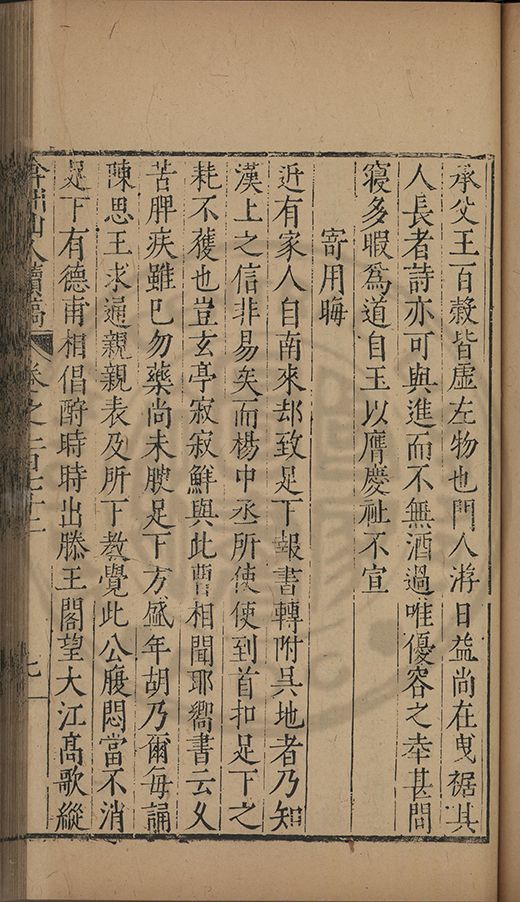 承父王百穀皆虛左物也門人游日益尚在曳裾其
人長者詩亦可與進而不無酒過唯優容之幸甚間
寢多暇爲道自玉以膺慶祉不宣
寄用晦
近有家人自南來却致足下報書轉附吳地者乃知
漢上之信非易矣而楊中丞所使使到首扣足下之
耗不獲也豈玄亭寂寂鮮與此曹相聞耶嚮書云乆
苦脾疾雖已勿藥尚未腴足下方盛年胡乃爾每誦
陳思王求通親親表及所下教覺此公腹悶當不消
足下有德甫相倡酧時時出滕王閣望大江高歌縱
弇州山人續稿 卷之一百七十二 七